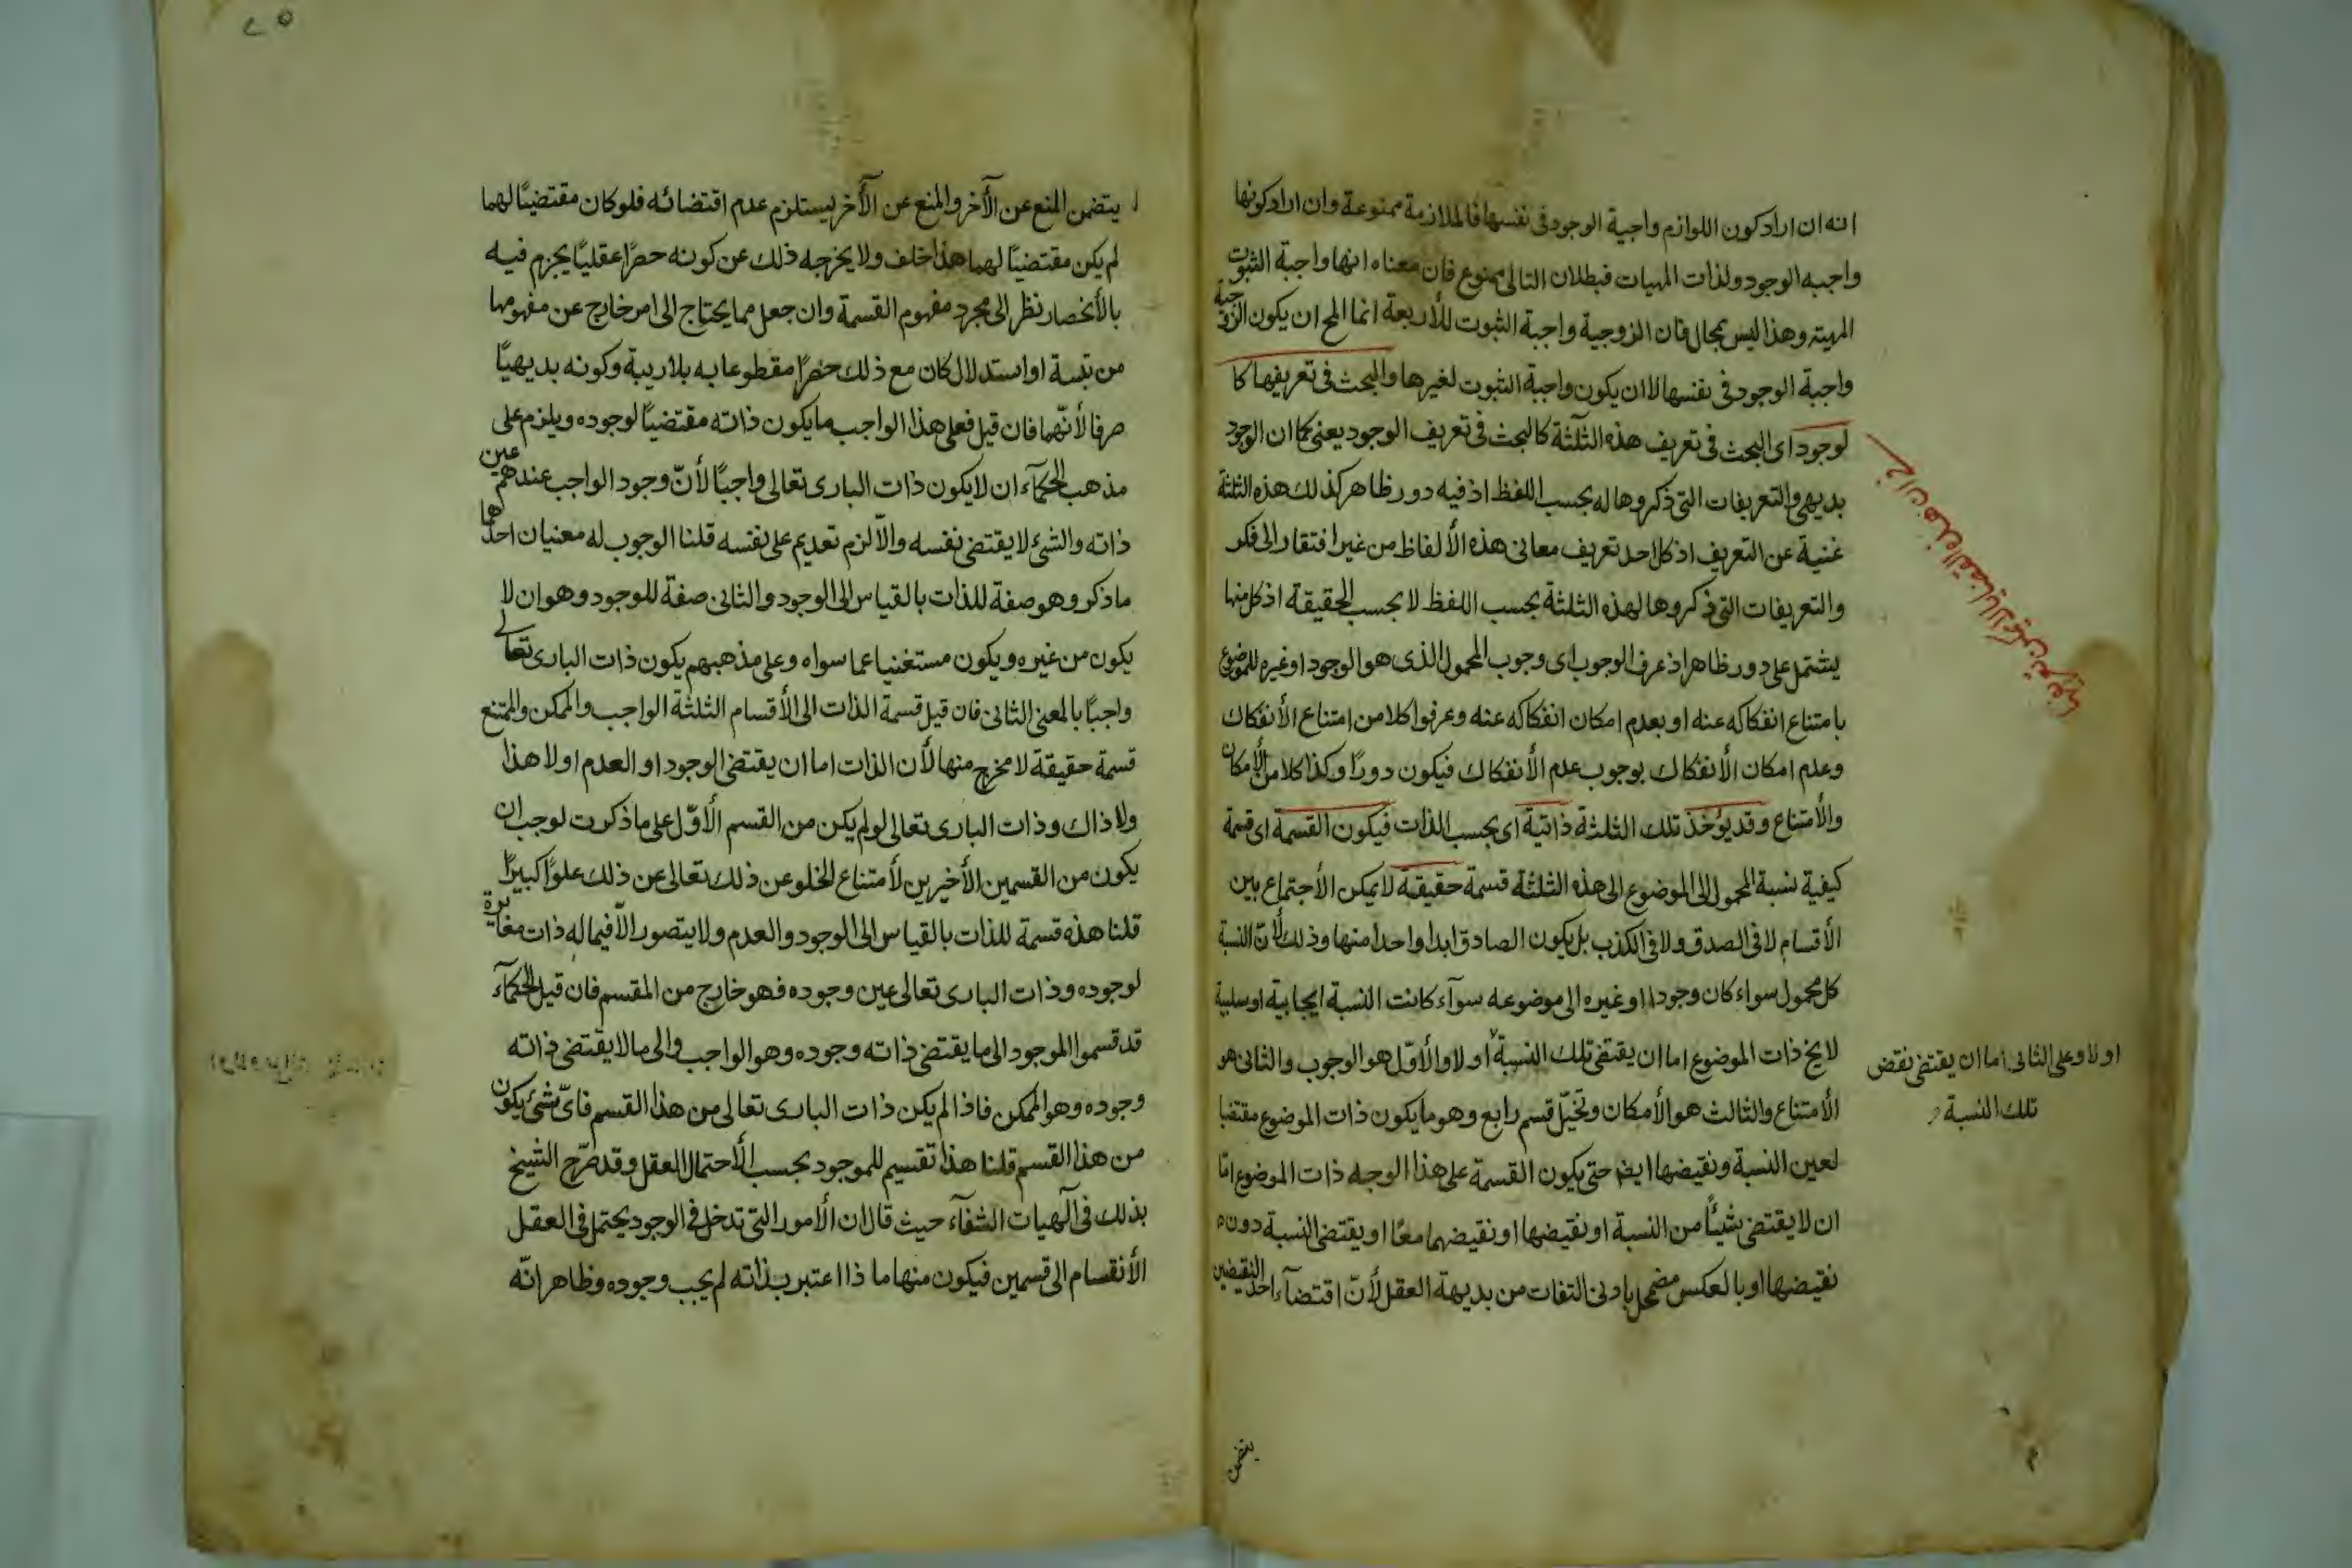 انه ان اراد كون اللوازم واجبة الوجود فى نفسها فالملازمة ممنوعة وان اراد كونها
واجبه الوجود ولذات المهيات فبطلان التالى ممنوع فان معناه انها واجبة الثبوت
المهيته وهذا ليس بمحال فان الزوجية واجبة الثبوت للأربعة انما المح ان يكون الزوجية
واجبة الوجود فى نفسها لا ان يكون واجبة الثبوت لغيرها والبحث فى تعريفها كا
لوجود اى البحث فى تعريف هذه الثلثة كالبحث فى تعريف الوجود يعنى كما ان الوجود
بديهى والتعريفات التى ذكروها له بحسب اللفظ اذ فيه دور ظاهر كذلك هذه الثلثة
غنية عن التعريف اذ كل احد تعريف معانى هذه الألفاظ من غير افتقار الى فكر
والتعريفات التى ذكروها لهذه الثلثة بحسب اللفظ لا بحسب الحقيقة اذ كل منها
يشتمل على دور ظاهر اذ عرف الوجوب اى وجوب المحمول الذى هو الوجود او غيره للموضوع
بامتناع انفكاكه عنه او بعدم امكان انفكاكه عنه وعرفوا كلا من امتناع الأنفكاك
وعدم امكان الأنفكاك بوجوب عدم الأنفكاك فيكون دورًا وكذا كلا من الأمكان
والأمتناع وقد يؤخذ تلك الثلثة ذاتية اى بحسب الذات فيكون القسمة اى قسمة
كيفية نسبة المحمول الى الموضوع الى هذه الثلثة قسمة حقيقية لا يمكن الأجتماع بين
الأقسام لا فى الصدق ولا فى الكذب بل يكون الصادق ابدا واحدا منها وذلك لأن النسبة
كل محمول سواء كان وجودا او غيره الى موضوعه سوآء كانت النسبة ايجابية او سلبية
لا يخ ذات الموضوع اما ان يقتضى تلك النسبة أو لا والأوّل هو الوجوب والثانى هو
الأمتناع والثالث هو الأمكان وتخيّل قسم رابع وهو ما يكون ذات الموضوع مقتضيا
لعين النسبة ونقيضها ايض حتى يكون القسمة على هذا الوجه ذات الموضوع امّا
ان لا يقتضى شيئًا من النسبة او نقيضها او نقيضهما معًا او يقتضى النسبة دون
نقيضها او بالعكس مضمحل بادنى التفات من بديهة العقل لأنّ اقتضآء احد النقيضين
او لا وعلى الثانى اما ان يقتضى نقض
تلك النسبة
يتضمن
يتضمن المنع عن الآخر والمنع عن الآخر يستلزم عدم اقتضائه فلو كان مقتضيًا لهما
لم يكن مقتضيًا لهما هذا خلف ولا يخرجه ذلك عن كونه حصرًا عقليًا يجزم فيه
بالأنحصار نظر الى مجرد مفهوم القسمة وان جعل مما يحتاج الى امر خارج عن مفهومها
من تنبيه او استدلال كان مع ذلك حصرًا مقطوعا به بلا ريبة وكونه بديهيًا
صرفا لأنّهما فان قيل فعلى هذا الواجب ما يكون ذاته مقتضيًا لوجوده ويلزم على
مذهب الحكمآء ان لا يكون ذات البارى تعالى واجبًا لأنّ وجود الواجب عندهم عين
ذاته والشئ لا يقتضى نفسه والاّ لزم تعديم على نفسه قلنا الوجوب له معنيان احدها
ما ذكر وهو صفة للذات بالقياس الى الوجود والثانى صفة للوجود وهو ان لا
يكون من غيره ويكون مستغنيا عما سواه وعلى مذهبهم يكون ذات البارى تعالى
واجبًا بالمعنى الثانى فان قيل قسمة الذات الى الأقسام الثلثة الواجب والممكن والممتنع
قسمة حقيقة لا مخرج منها لأن الذات اما ان يقتضى الوجود او العدم او لا هذا
ولا ذاك وذات البارى تعالى لو لم يكن من القسم الأوّل على ما ذكرت لوجب ان
يكون من القسمين الأخيرين لأمتناع الخلو عن ذلك تعالى عن ذلك علوًا كبيرًا
قلنا هذه قسمة للذات بالقياس الى الوجود والعدم ولا يتصور الاّ فيما له ذات مغايرة
لوجوده وذات البارى تعالى عين وجوده فهو خارج من المقسم فان قيل الحكمآء
قد قسموا الموجود الى ما يقتضى ذاته وجوده وهو الواجب والى ما لا يقتضى ذاته
وجوده وهو الممكن فاذا لم يكن ذات البارى تعالى من هذا القسم فاىّ شئ يكون
من هذا القسم قلنا هذا تقسيم للموجود بحسب الأحتمال العقل وقد صرّح الشيخ
بذلك فى آلهيات الشفآء حيث قال ان الأمور التى تدخل فى الوجود يحتمل فى العقل
الأنقسام الى قسمين فيكون منها ما ذا اعتبر بذاته لم يجب وجوده وظاهر انّه